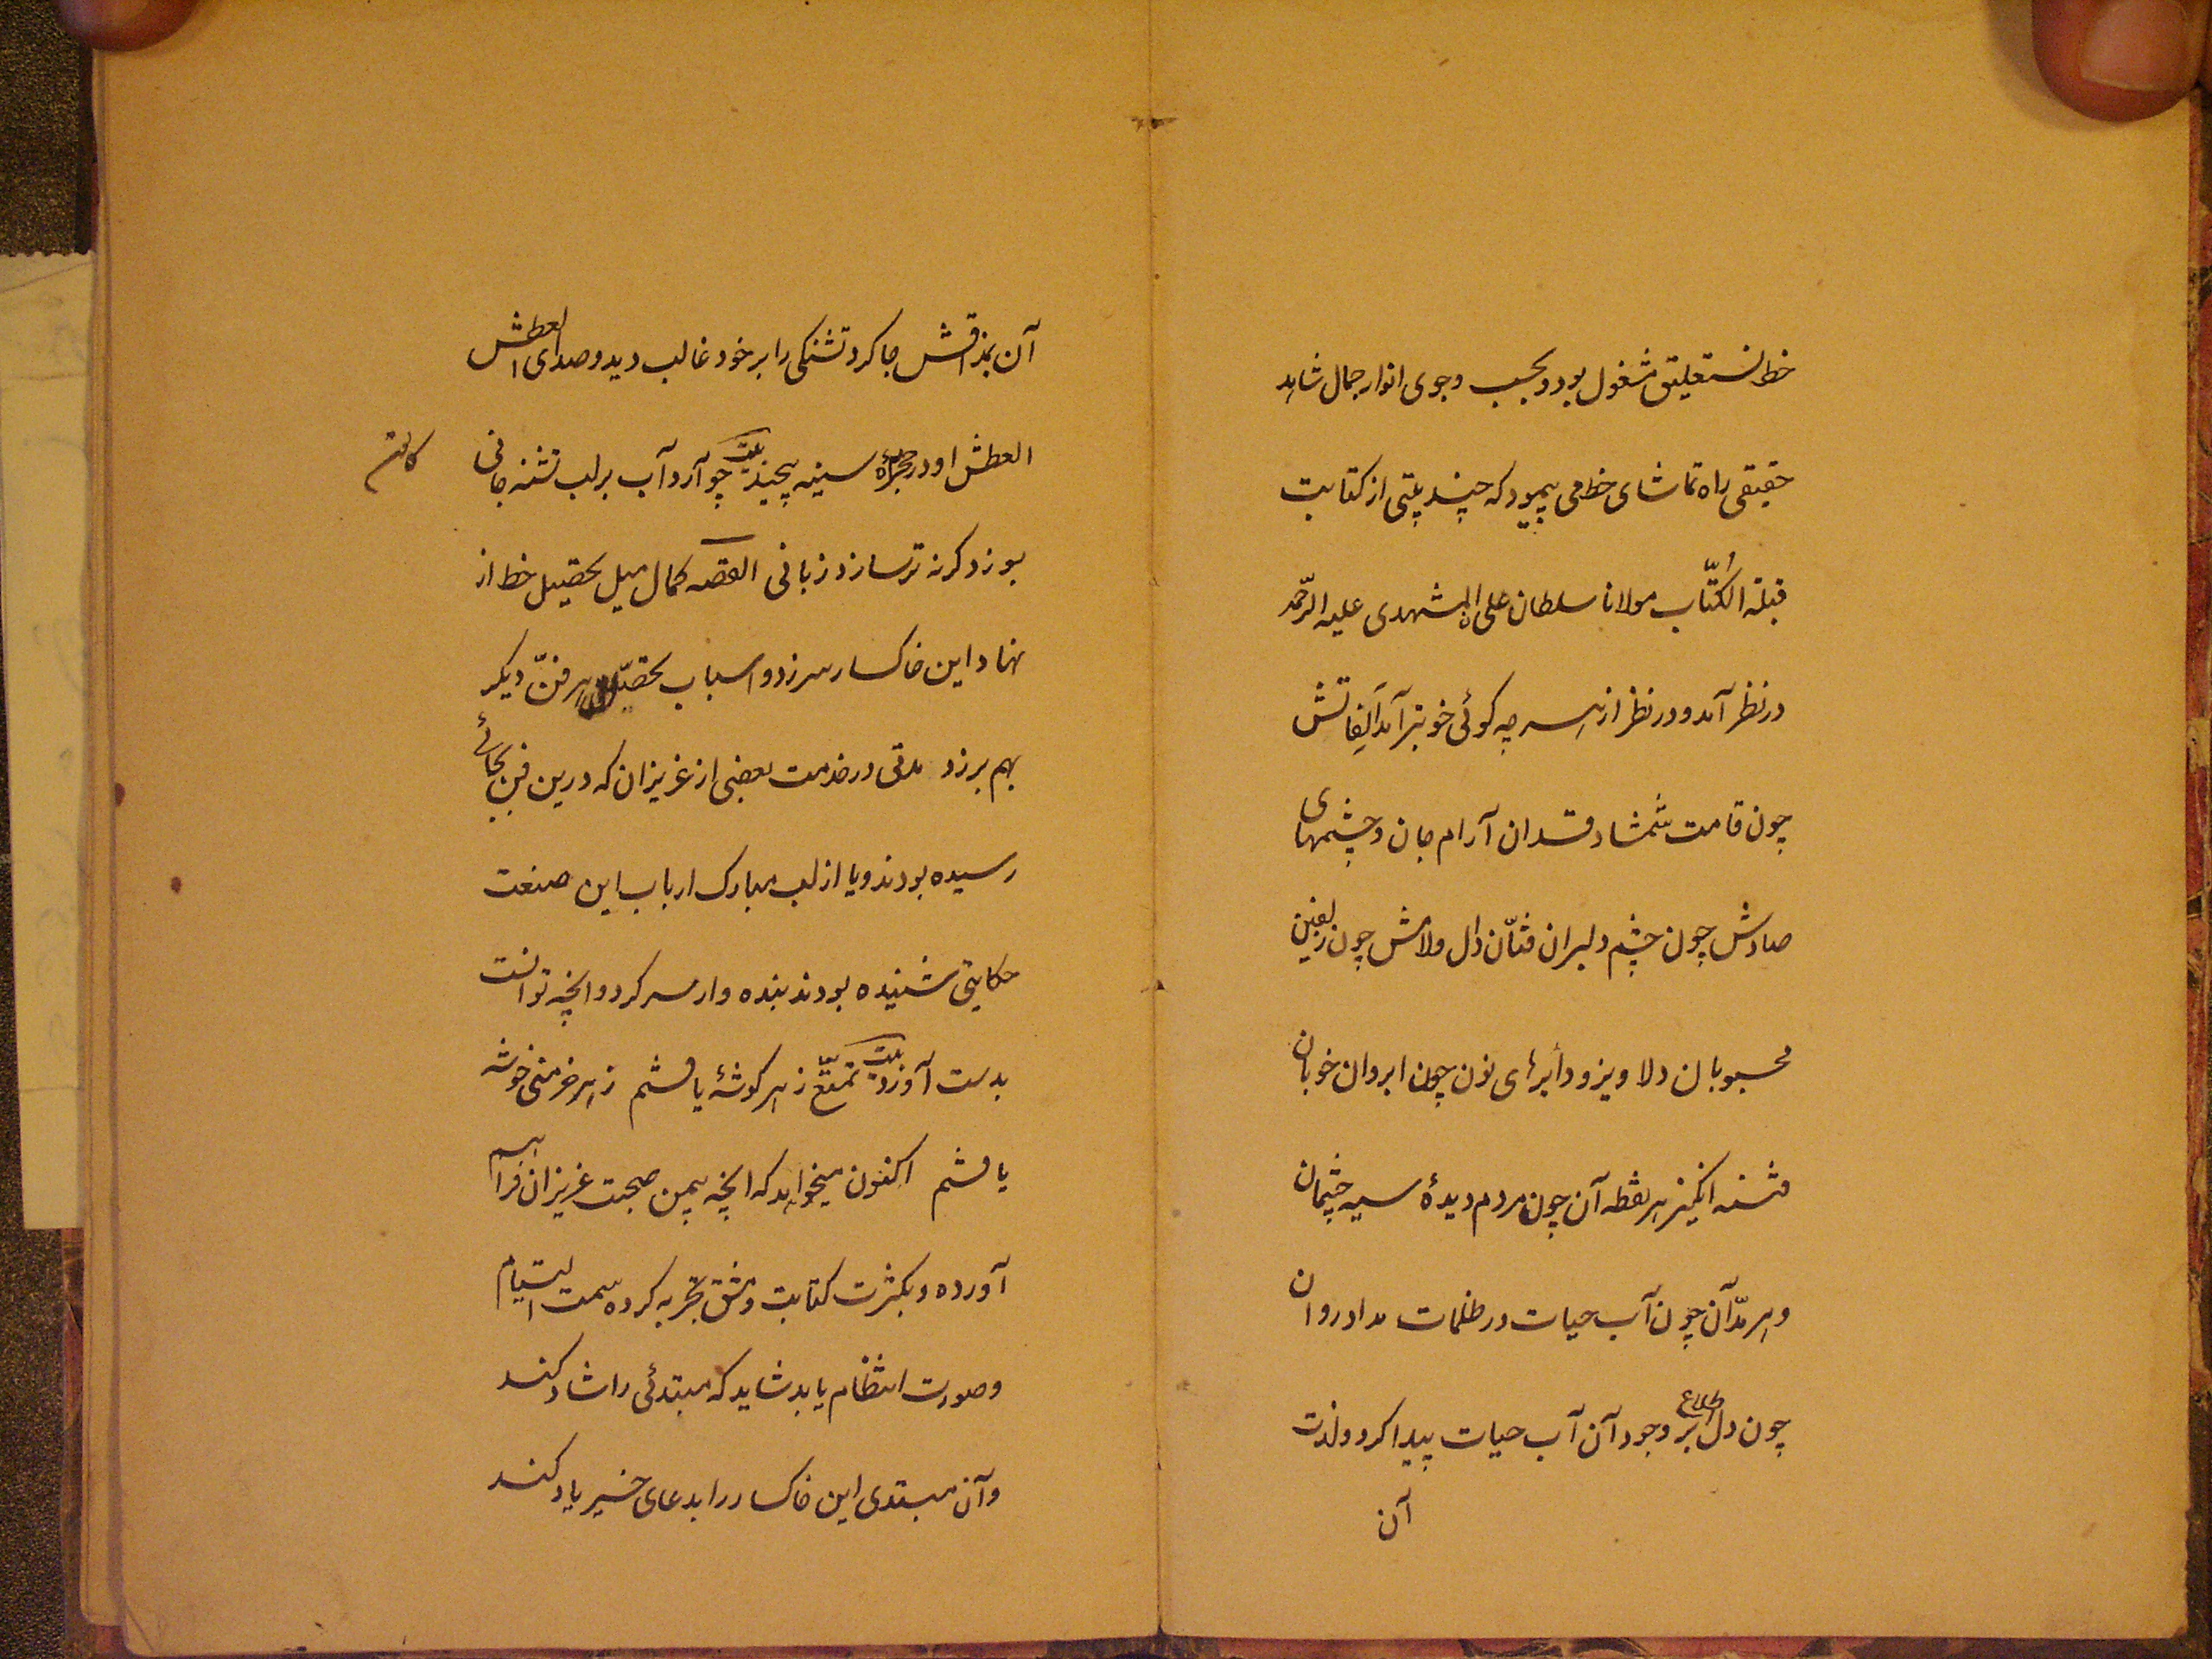 خط نستعلیق مشغول بود و بحسب وجوی انوار جمال شاهد
حقیقی راه تماشای خط می پیمود که چند بیتی از کتابت
قبلة الکُتّاب مولانا سلطان علی المشهدی علیه الرّحمه
در نظر آمد و در نظر از هر چه کوئی خوبتر آمد اَلِفاتش
چون قامت شمشاد قدان آرام جان و چشمهای
صادش چون چشم دلبران فتّان دال و لامش چون زلفین
محبوبان دلاویز و دأیرهای نون چون ابروان خوبان
فتنه انکیز هر نقطه آن چون مردم دیدۀ سیه چشمان
و هر مدّ آن چون آب حیات در ظلمات مداد روان
چون دل اطلاع بر وجود آن آب حیات پیدا کرد و لذت
آن
آن بمذاقش جا کرد تشنکی را بر خود غالب دید و صدای العطش
العطش او در حجرۀ سینه پیچید بیت چو آرد آب بر لب تشنه جانی
بوزد کرنه تر سازد زبانی القصه کمال میل بتحصیل خط از
نهاد این خاکسار سرزد و اسباب تحصیل هر فنّ دیکر
بهم برزد مدتی در خدمت بعضی از عزیزان که درین فن بجائی
رسیده بودند و یا از لب مبارک ارباب این صنعت
حکایتی شنیده بودند بنده وار سر کرد و انچه توانست
بدست آورد بیت تمتّع ز هر کوشۀ یافتم ز هر خرمنی خوشه
یافتم اکنون میخواهد که انچه بیمن صحبت عزیزان فراهم
آورده و بکثرت کتابت و مشق تجربه کرده سمت التیام
و صورت انتظام یابد شاید که مبتدئی را شاد کند
و آن مبتدی این خاکسار را بدعای خیر یاد کند